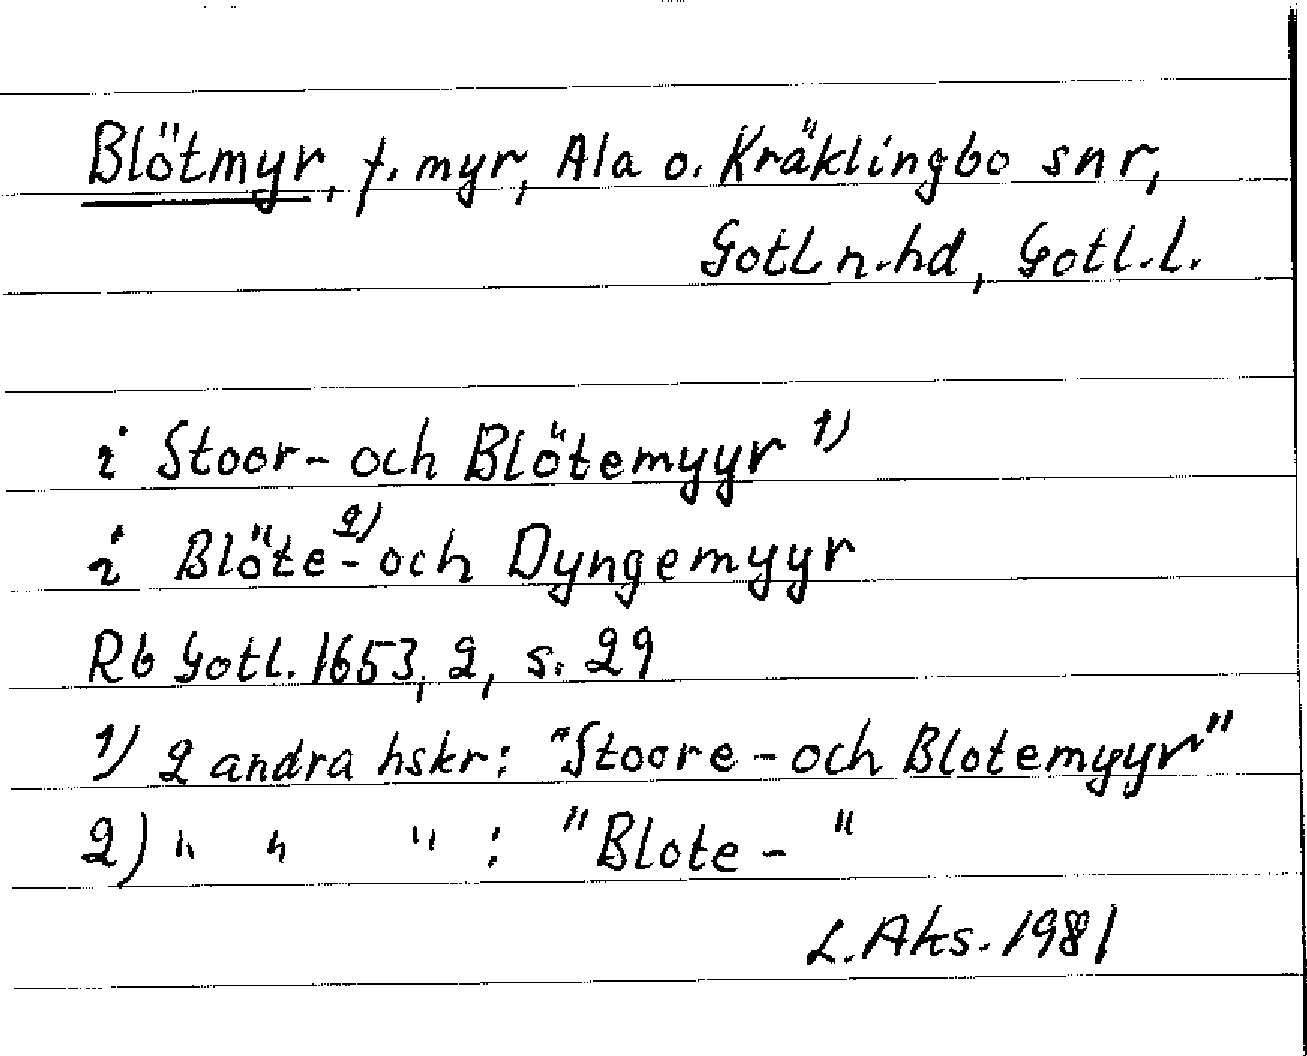 Blötmyr, f. myr, Ala o. Kräklingbo snr,
Gotl n.hd, Gotl.l.
i Stoor- och Blötemyyr 1)
i Blöte-2) och Dyngemyyr
Rb Gotl. 1653, 2, s. 29
1) 2 andra hskr: "Stoore - och Blotemyyr"
2) " " " : "Blote - "
L. Aks. 1981